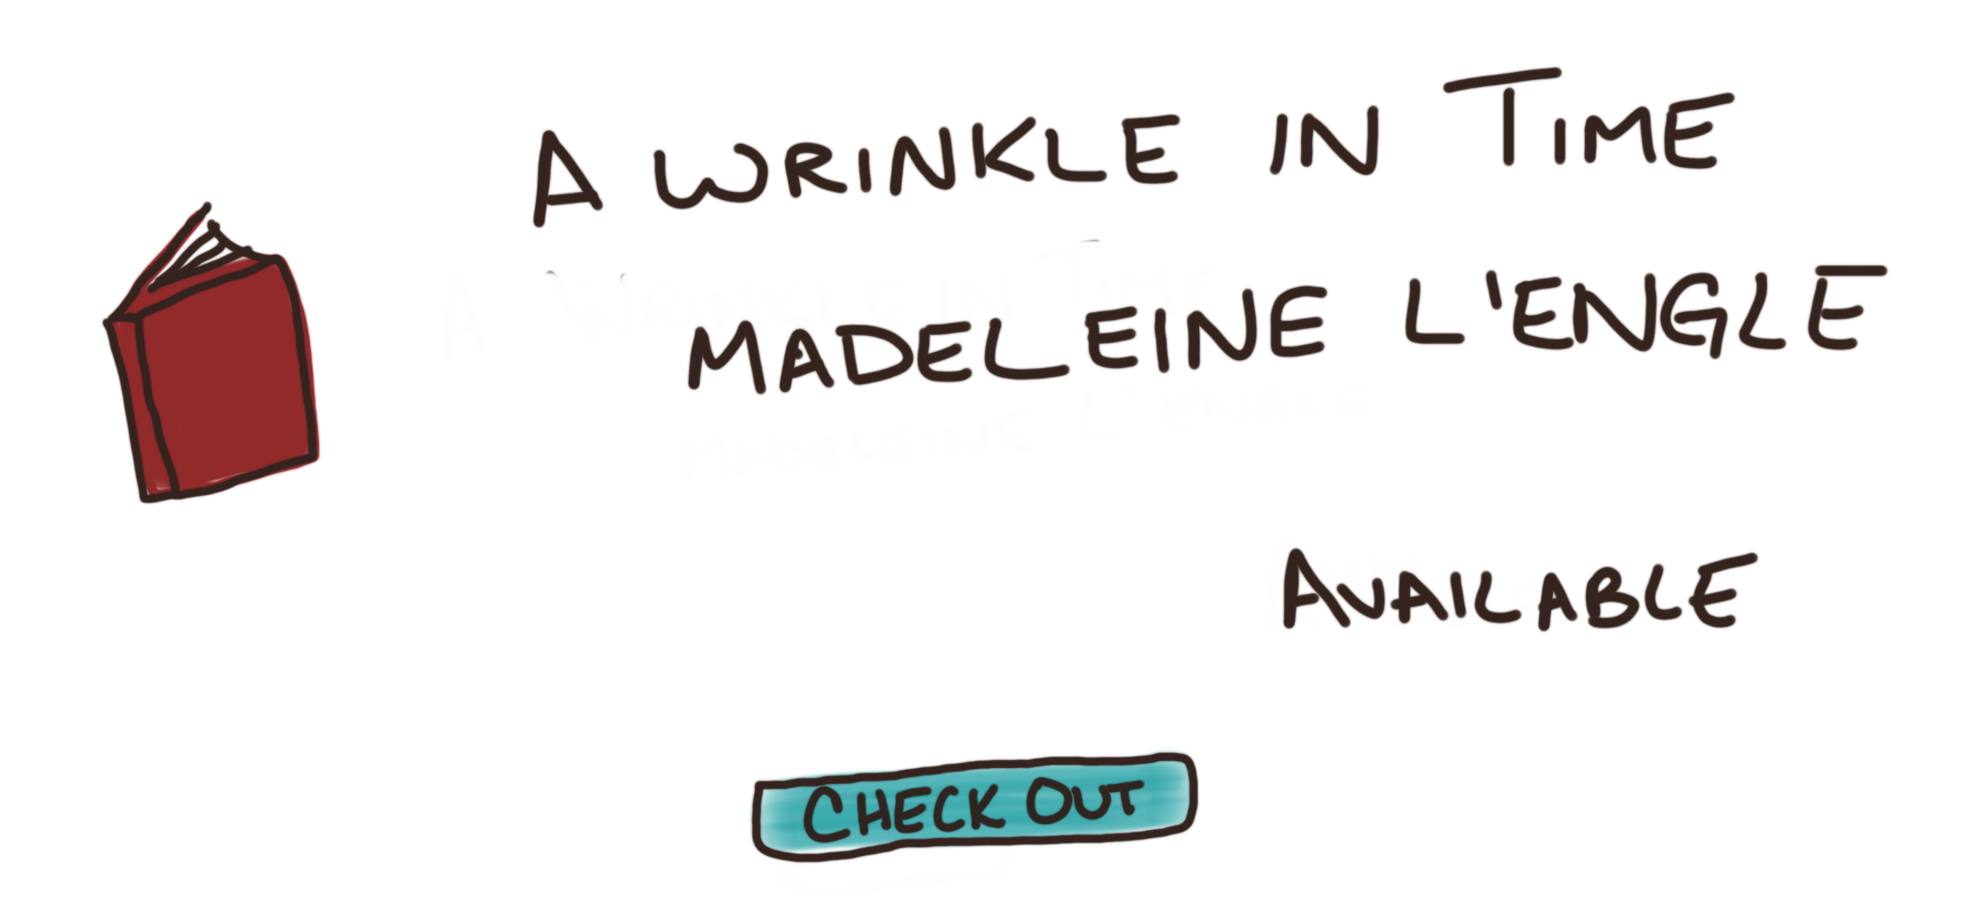 A WRINKLE IN TIME
MADELEINE L'ENGLE
AVAILABLE
CHECK OUT